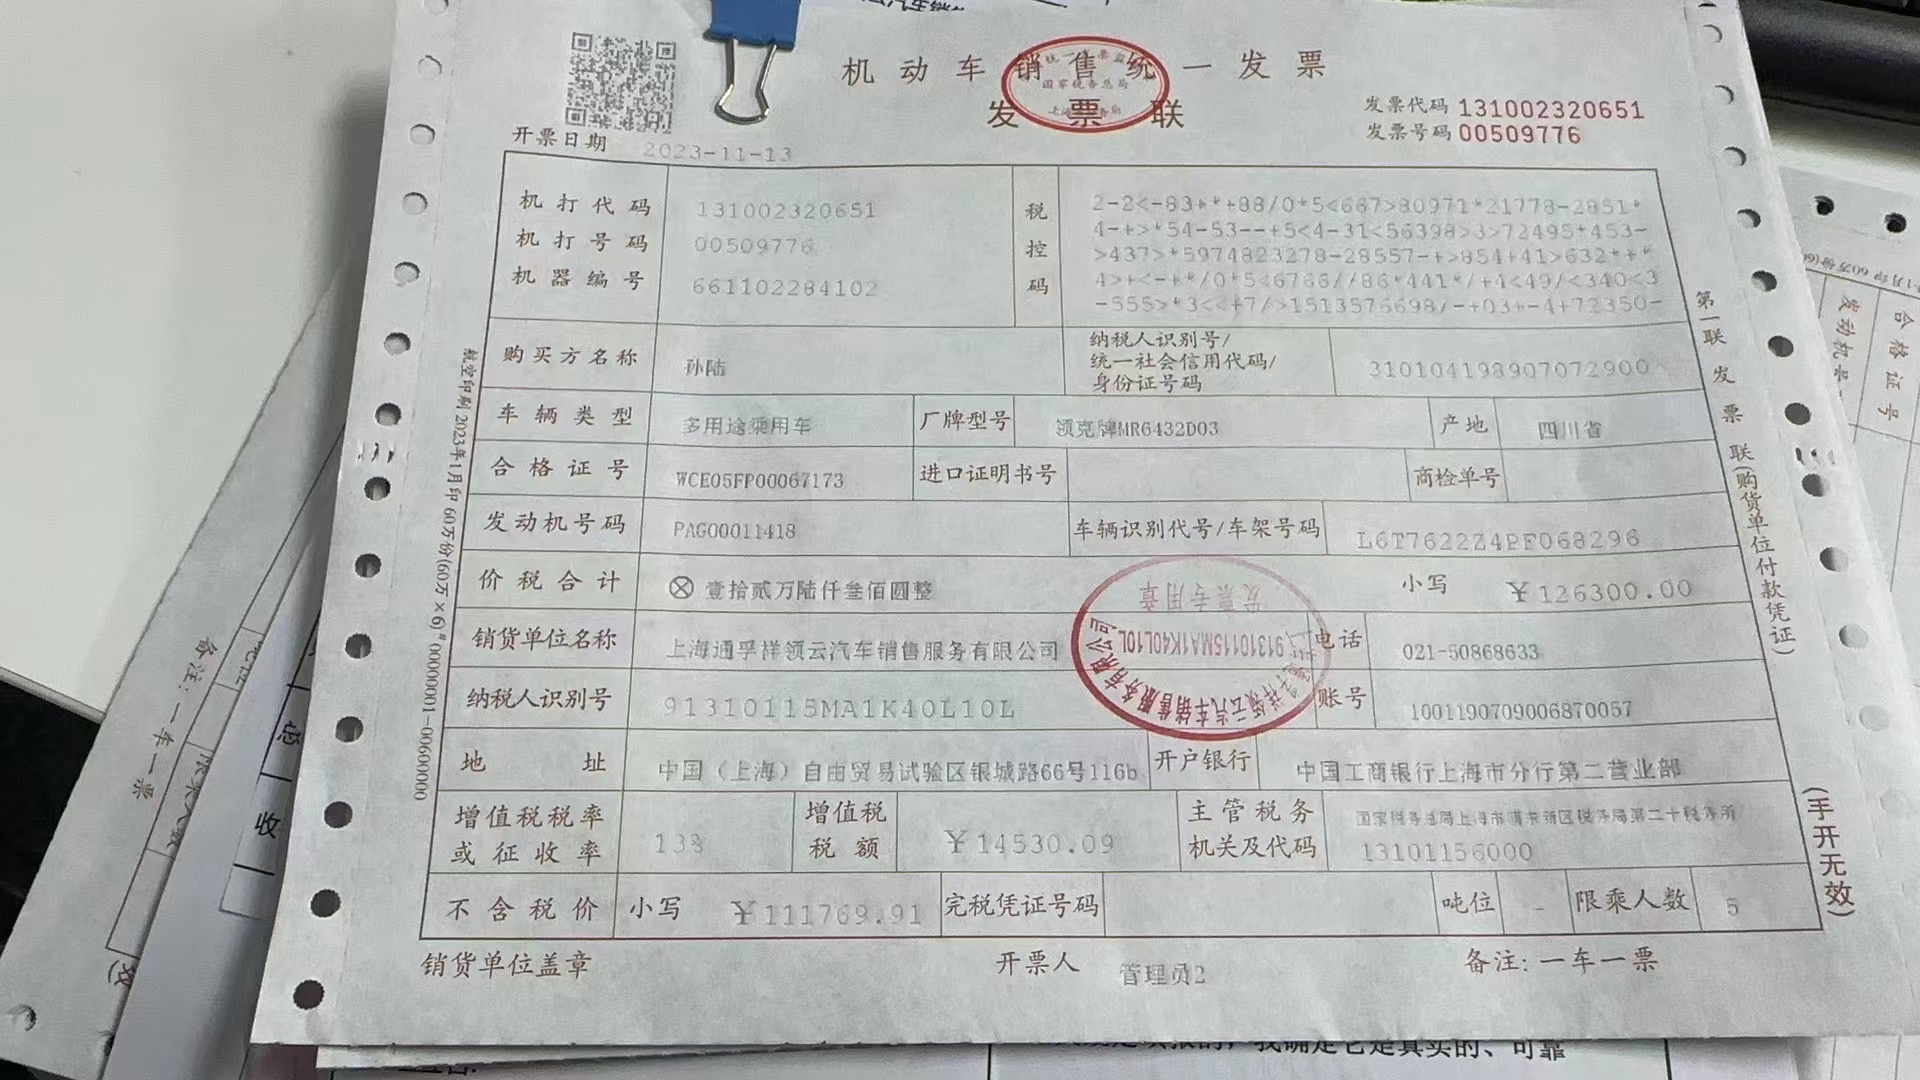 机动车销售统一发票
发票联
发票代码 131002320651
发票号码 00509776
开票日期 2023-11-13
机打代码 131002320651
机打号码 00509776
机器编号 661102284102
税控码
2-2<-83+*+88/0*5<667>80971*21778-2851*
4-+>*54-53--+5<4-31<56398>3>72495*453-
>437>*5974823278-28557-+>854+41>632*+*
4>+<-+*/0*5<6766//86*441*/+4<49/<340<3
-555>*3<<+7/>1513576698/-+03+-4+72350-
购买方名称 孙陆
纳税人识别号/
统一社会信用代码/
身份证号码
310104198907072900
车辆类型 多用途乘用车 厂牌型号 领克牌MR6432D03 产地 四川省
合格证号 WCE05FP00067173 进口证明书号 商检单号
发动机号码 PAG00011418 车辆识别代号/车架号码 L6T7622Z4PF068296
价税合计 ⊗ 壹拾贰万陆仟叁佰圆整 小写 ¥126300.00
销货单位名称 上海通孚祥领云汽车销售服务有限公司 电话 021-50868633
纳税人识别号 91310115MA1K40L10L 账号 1001190709006870057
地址 中国（上海）自由贸易试验区银城路66号116b 开户银行 中国工商银行上海市分行第二营业部
增值税税率
或征收率
13%
增值税
税额
¥14530.09
主管税务
机关及代码
国家税务总局上海市浦东新区税务局第二十税务所
13101156000
不含税价 小写 ¥111769.91 完税凭证号码 吨位 - 限乘人数 5
销货单位盖章 开票人 管理员2 备注:一车一票
第一联 发票联(购货单位付款凭证)
(手开无效)
国家税务总局
发票专用章
91310115MA1K40L10L
备注:一车一票
合格证号